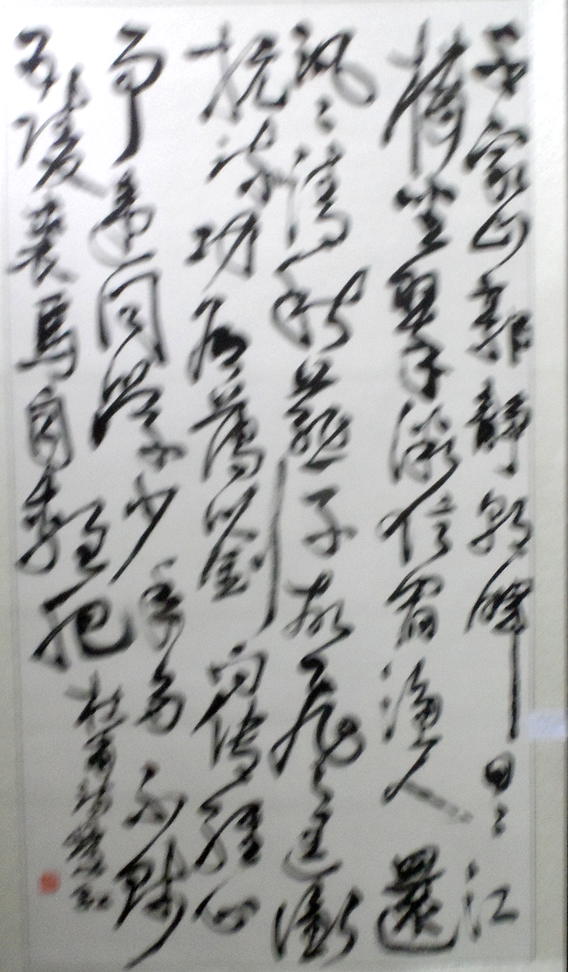 千家山郭靜朝暉日〻江
樓坐翠微信宿漁人還
汎〻清秋燕子故飛〻匡衡
抗疏功名薄劉向傳經心
事違同學少年多不賤
五陵裘馬自輕肥
杜甫詩